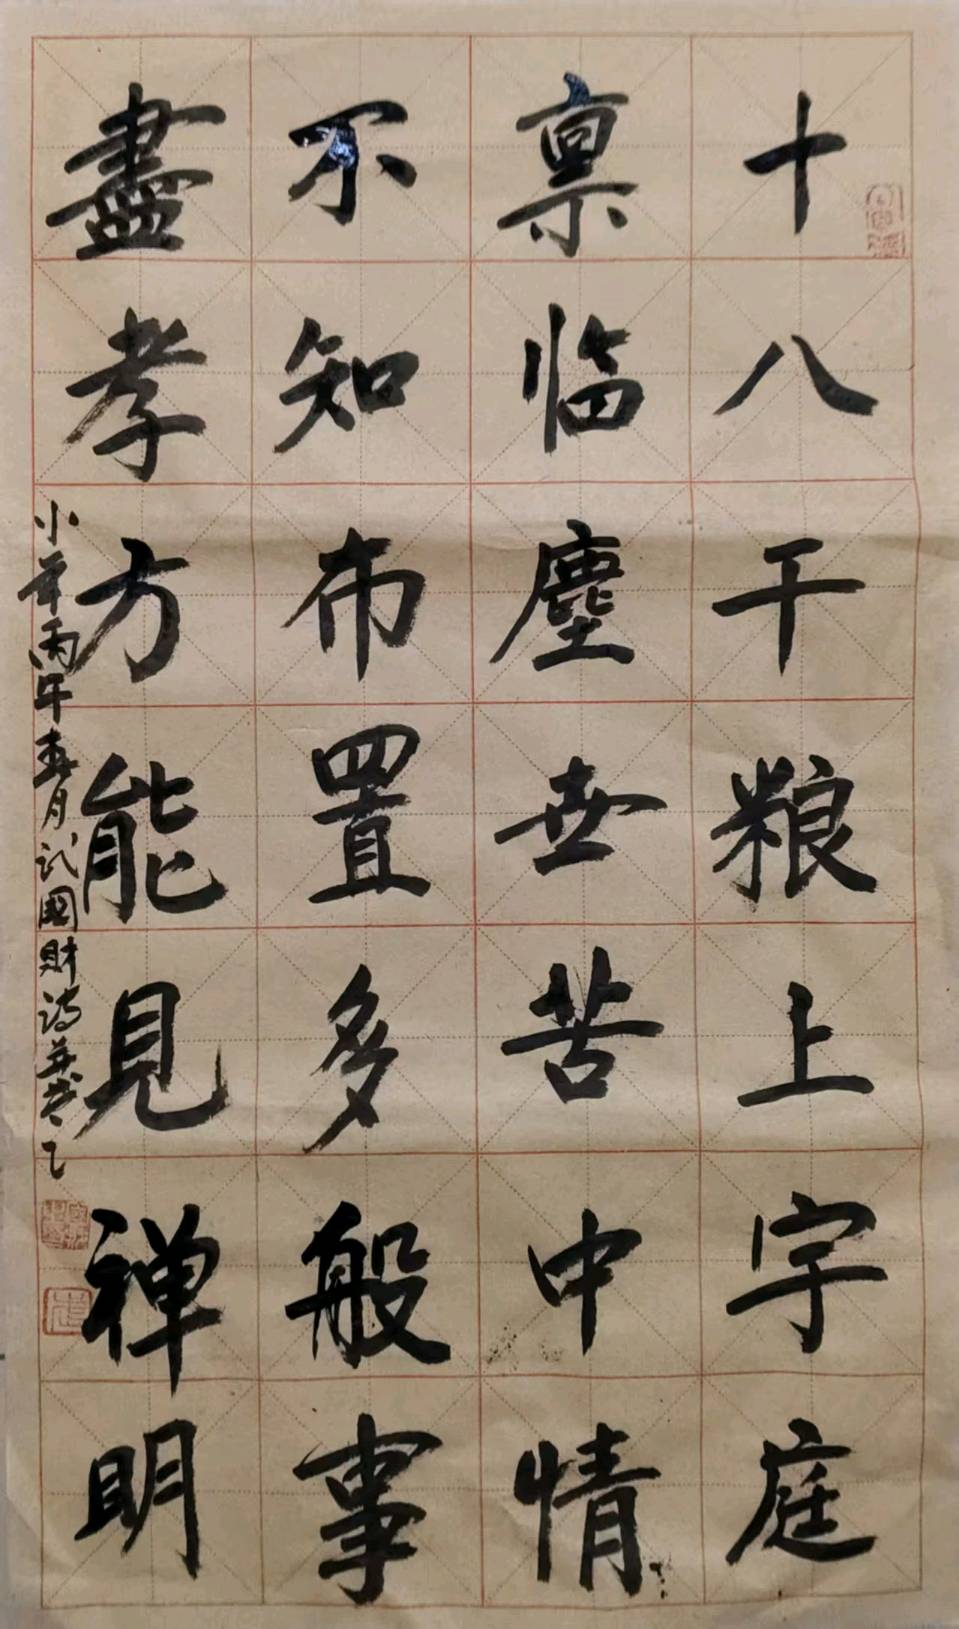 十八干粮上字庭
禀临塵世苦中情
不知布置多般事
盡孝方能見禅明
小莘丙午春月 國財诗并書